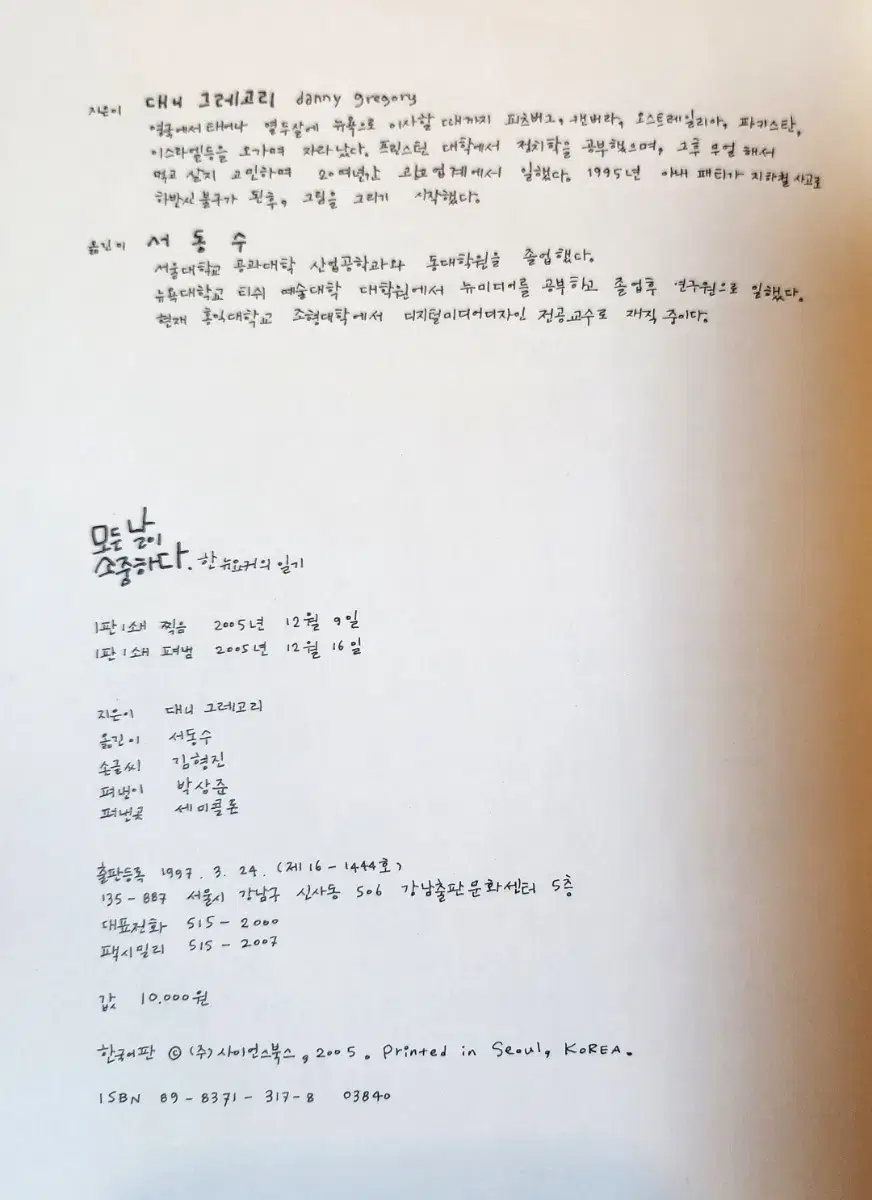 지은이 대니 그레고리 danny gregory
영국에서 태어나 열두살에 뉴욕으로 이사할 때까지 피츠버그, 캔버라, 오스트레일리아, 파키스탄,
이스라엘등을 오가며 자라났다. 프린스턴 대학에서 정치학을 공부했으며, 그후 무얼 해서
먹고 살지 고민하며 20여년간 광고업계에서 일했다. 1995년 아내 패티가 지하철 사고로
하반신 불구가 된후, 그림을 그리기 시작했다.
옮긴이 서동수
서울대학교 공과대학 산업공학과와 동대학원을 졸업했다.
뉴욕대학교 티쉬 예술대학 대학원에서 뉴미디어를 공부하고 졸업후 연구원으로 일했다.
현재 홍익대학교 조형대학에서 디지털미디어디자인 전공교수로 재직 중이다.
모든 날이
소중하다. 한 뉴요커의 일기
1판 1쇄 찍음 2005년 12월 9일
1판 1쇄 펴냄 2005년 12월 16일
지은이 대니 그레고리
옮긴이 서동수
손글씨 김형진
펴낸이 박상준
펴낸곳 세미콜론
출판등록 1997. 3. 24. (제16-1444호)
135-887 서울시 강남구 신사동 506 강남출판문화센터 5층
대표전화 515-2000
팩시밀리 515-2007
값 10.000원
한국어판 © (주)사이언스북스, 2005. Printed in Seoul, KOREA.
ISBN 89-8371-317-8 03840